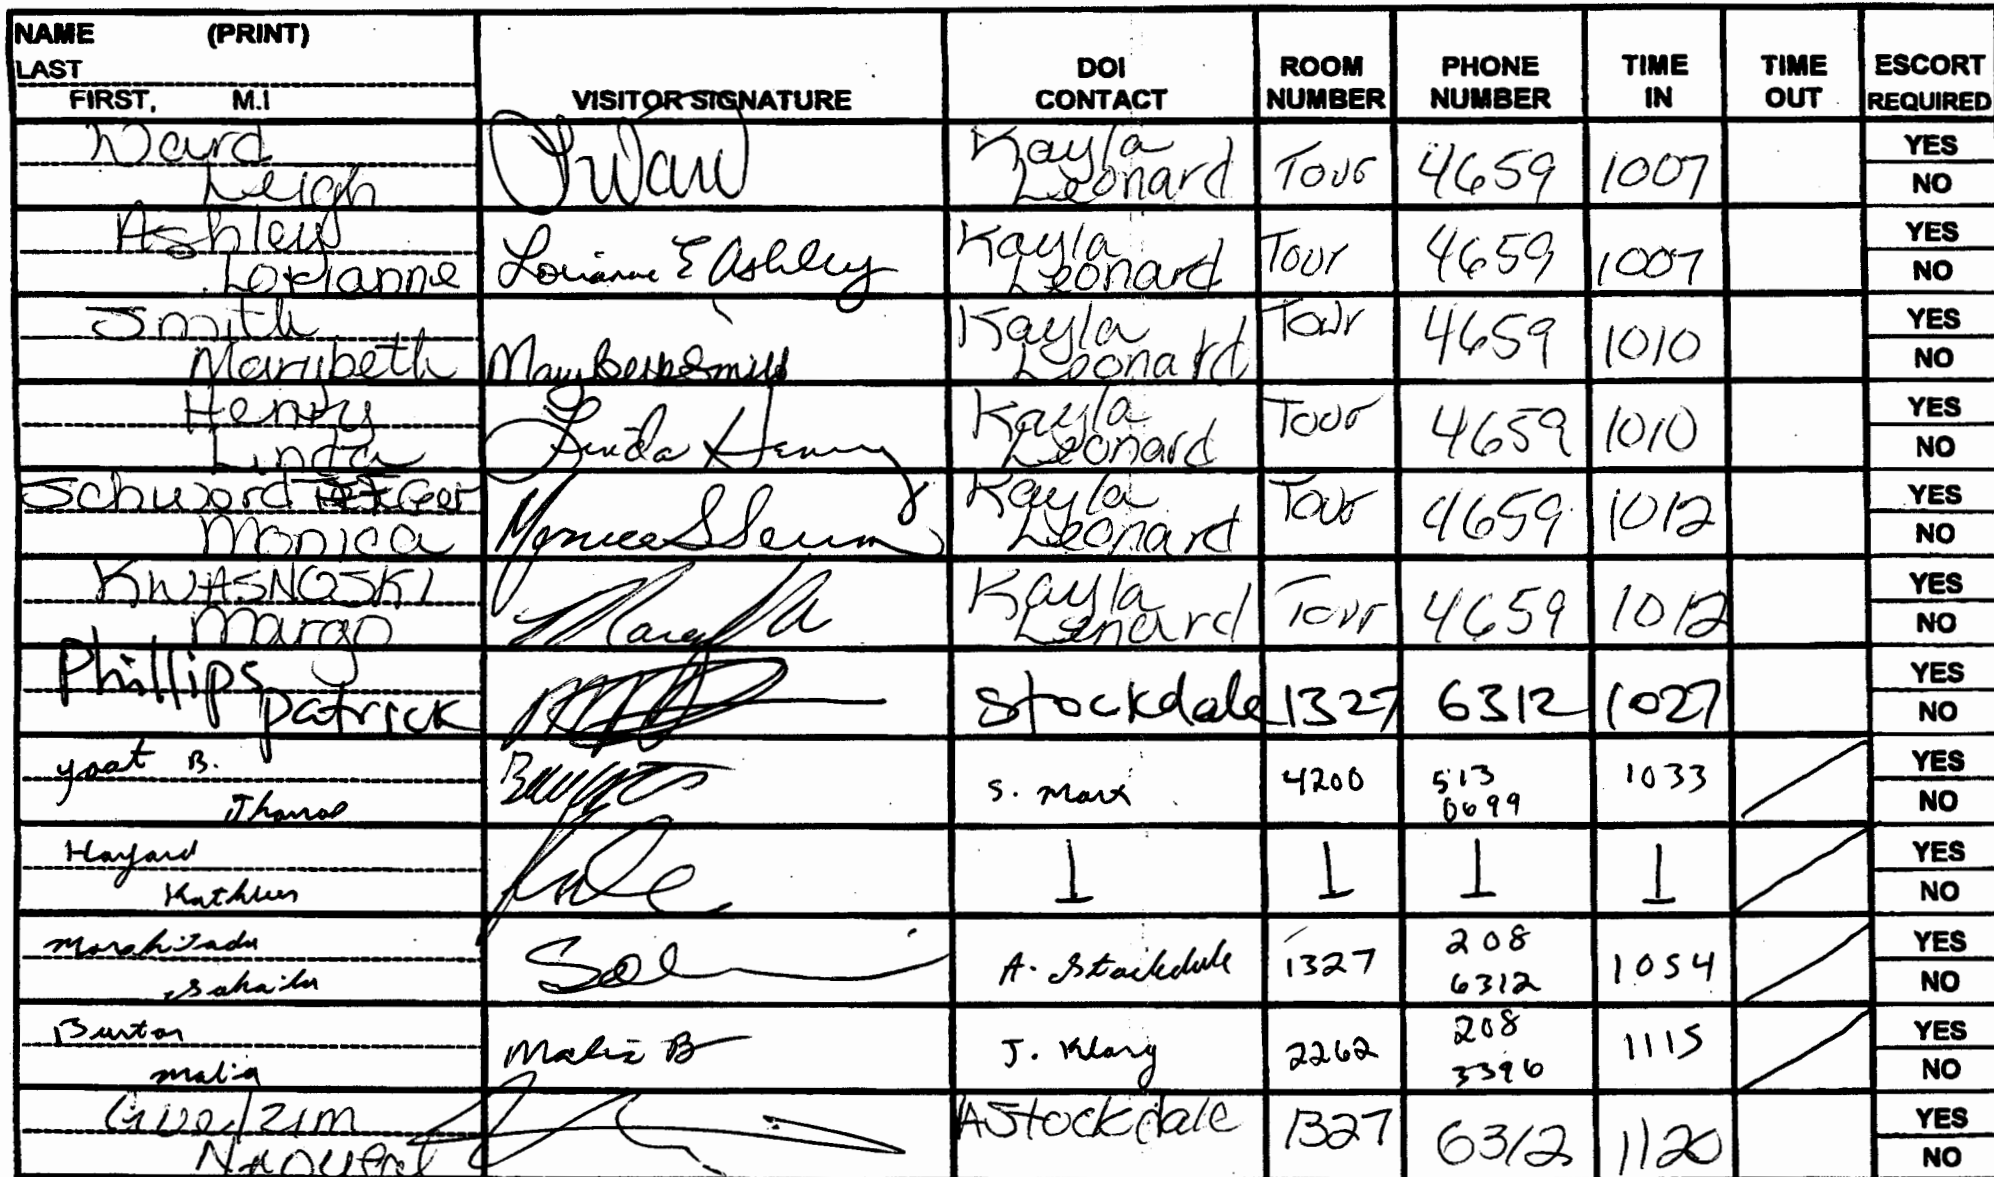 NAME (PRINT)
LAST
FIRST, M.I
VISITOR SIGNATURE
DOI CONTACT
ROOM NUMBER
PHONE NUMBER
TIME IN
TIME OUT
ESCORT REQUIRED
Ward Leigh Kayla Leonard Tour 4659 1007 YES NO
Ashley Lorianne Lorianne E Ashley Kayla Leonard Tour 4659 1007 YES NO
Smith Marybeth Mary Beth Smith Kayla Leonard Tour 4659 1010 YES NO
Henry Linda Linda Henry Kayla Leonard Tour 4659 1010 YES NO
Monica Kayla Leonard Tour 4659 1012 YES NO
KWASNOSKI Margo Kayla Lenard Tour 4659 1012 YES NO
Phillips patrick Stockdale 1327 6312 1027 YES NO
B. S. Mark 4200 513 0699 1033 YES NO
YES NO
A. Stockdale 1327 208 6312 1054 YES NO
Burton malia Malia B 2262 208 3396 1115 YES NO
A Stockdale 1327 6312 1120 YES NO